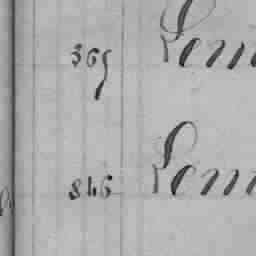 365 Lem
846 Lem